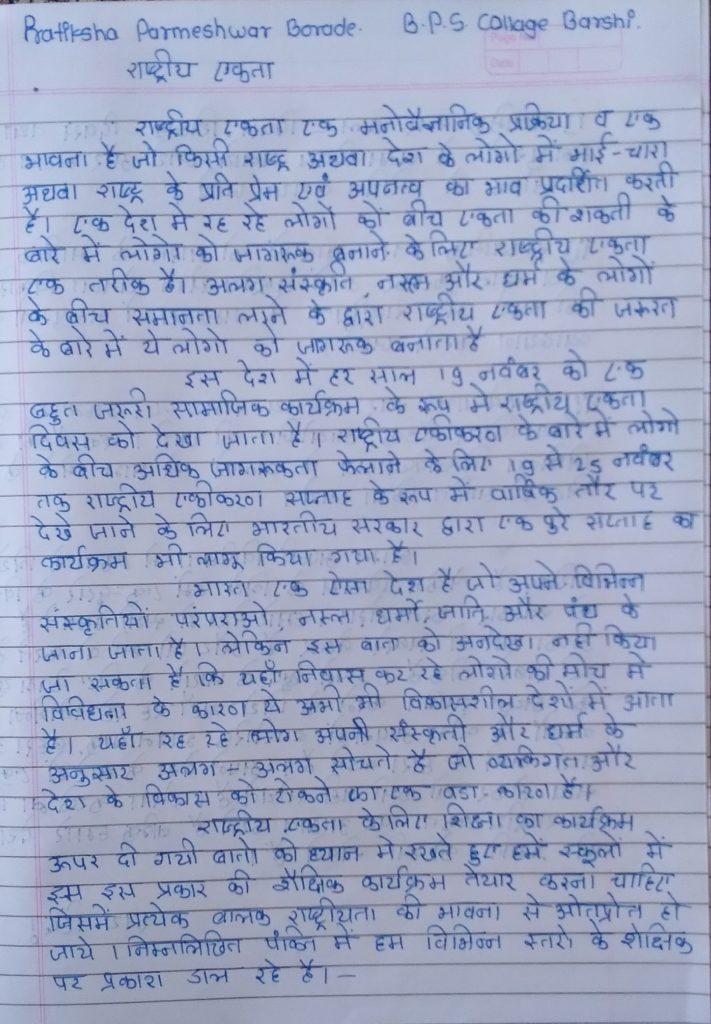 Pratiksha Parmeshwar Borade. B.P.S. Collage Barshi.
राष्ट्रीय एकता
राष्ट्रीय एकता एक मनोवैज्ञानिक प्रक्रिया व एक
भावना है जो किसी राष्ट्र अथवा देश के लोगो में भाई-चारा
अथवा राष्ट्र के प्रति प्रेम एवं अपनत्व का भाव प्रदर्शित करती
है। एक देश मे रह रहे लोगों कों बीच एकता की शक्ती के
बारे में लोगो को जागरुक बनाने के लिए राष्ट्रीय एकता
एक तरीक है। अलग संस्कृति, नस्ल और धर्म के लोगों
के बीच समानता लाने के द्वारा राष्ट्रीय एकता की जरूरत
के बारे में ये लोगो को जागरुक बनाता है
इस देश में हर साल 19 नवंबर को एक
बहुत जरुरी सामाजिक कार्यक्रम के रूप मे राष्ट्रीय एकता
दिवस को देखा जाता है। राष्ट्रीय एकीकरण के बारे में लोगो
के बीच अधिक जागरुकता फेलाने के लिए 19 से 25 नवंबर
तक राष्ट्रीय एकीकरण सप्ताह के रूप में वार्षिक तौर पर
देखे जाने के लिए भारतीय सरकार द्वारा एक पुरे सप्ताह का
कार्यक्रम भी लागू किया गया है।
भारत एक ऐसा देश है जो अपने विभिन्न
संस्कृतियों परंपराओ, नस्ल धर्मो, जाति और पंथ के
जाना जाता है। लेकिन इस बात को अनदेखा नही किया
जा सकता है कि यहाँ निवास कर रहे लोगो की सोच मे
विविधता के कारण ये अभी भी विकासशील देशों में आता
है। यहाँ रह रहे लोग अपनी संस्कृती और धर्म के
अनुसार अलग-अलग सोचते है जो व्यक्तिगत और
देश के विकास को रोकने का एक बडा कारण है।
राष्ट्रीय एकता के लिए शिक्षा का कार्यक्रम
ऊपर दी गयी बातो को ध्यान मे रखते हुए हमें स्कूलों में
इस इस प्रकार की शैक्षिक कार्यक्रम तैयार करना चाहिए
जिसमें प्रत्येक बालक राष्ट्रीयता की भावना से ओतप्रोत हो
जाये। निम्नलिखित पंक्ति में हम विभिन्न स्तरो के शेक्षिक
पर प्रकाश डाल रहे है।—